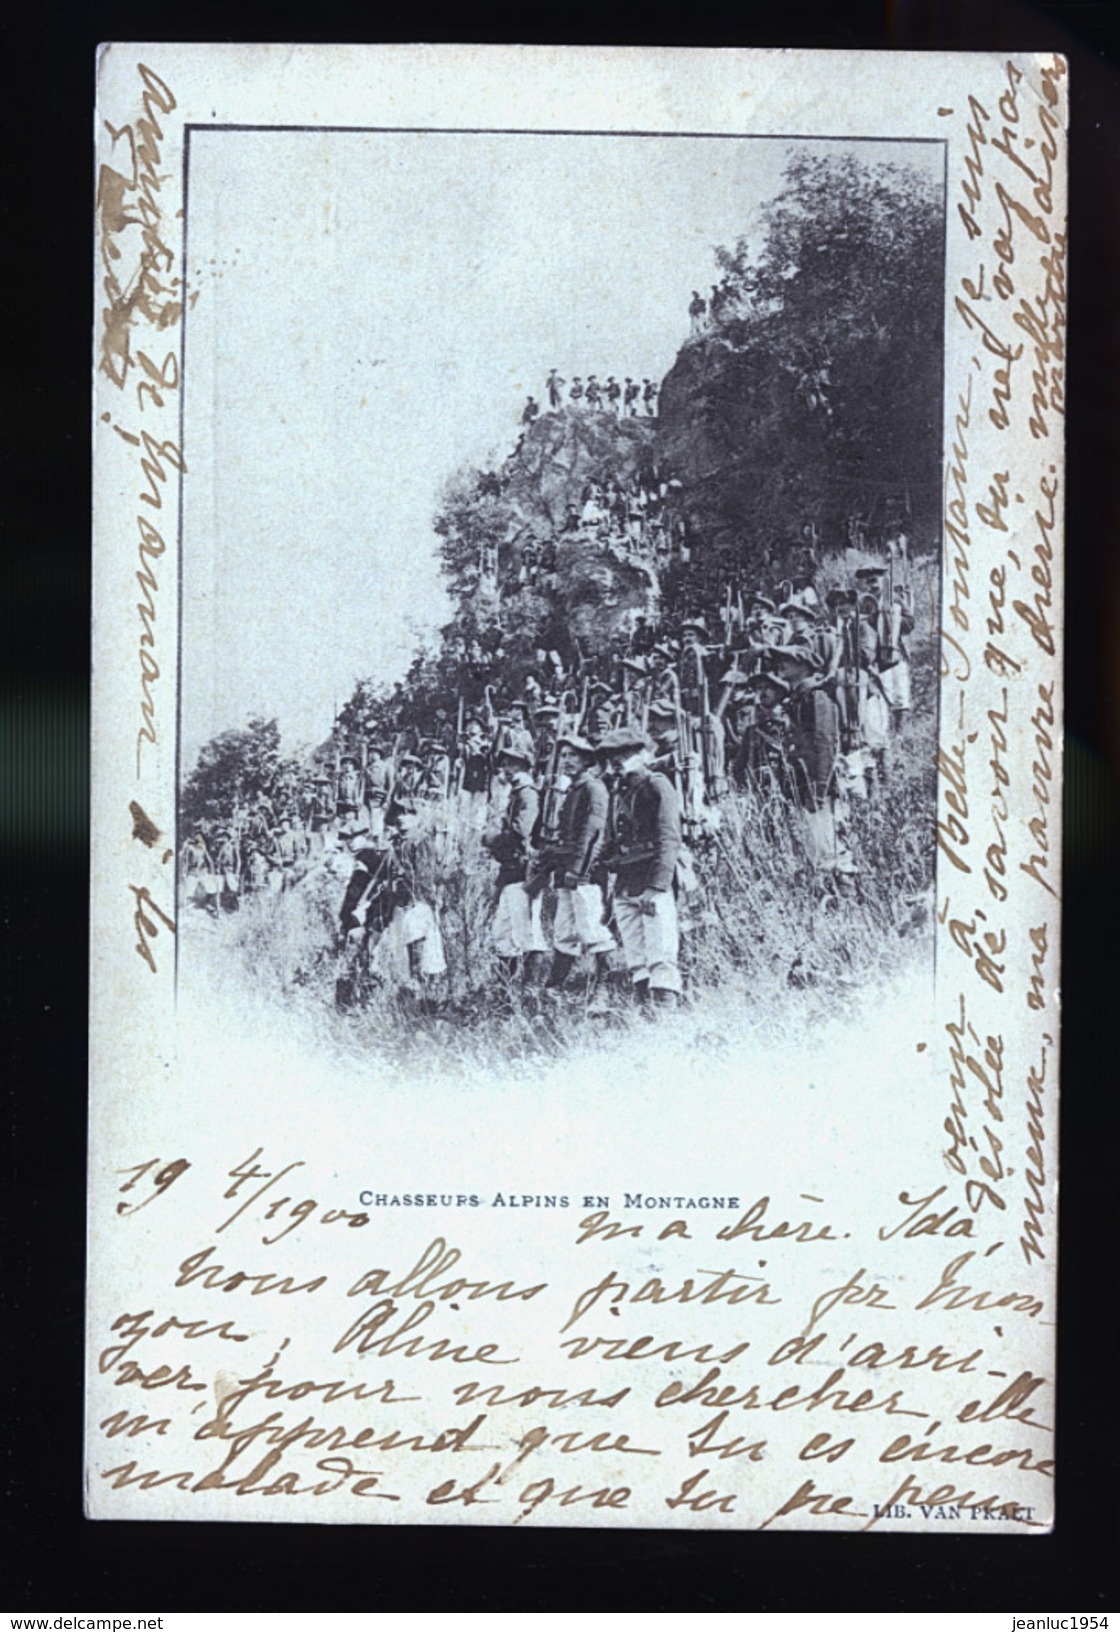 CHASSEURS ALPINS EN MONTAGNE
19 4/1900
Ma chère. Ida,
nous allons partir pr Mon
zou, Aline viens d'arri-
ver, pour nous chercher, elle
m'apprend que tu es encore
malade et que tu ne peux
venir à Belle-Fontaine, je suis
désolée de savoir que, tu nel vas pas
mieux, ma pauvre cherie. mille
amitiés de maman à tes
LIB. VAN PRAET
www.delcampe.net
jeanluc1954